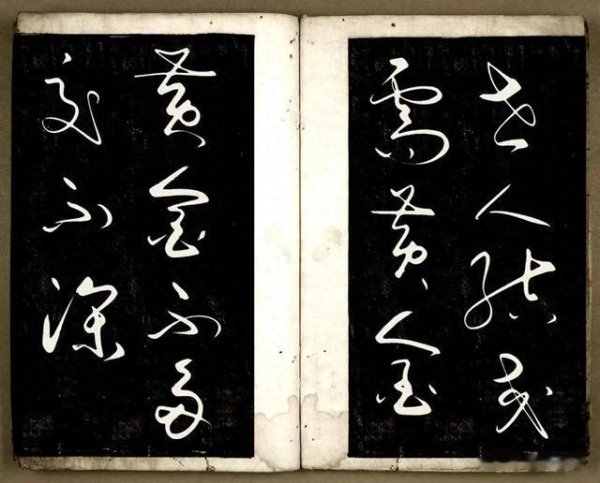 世人結交
需黃金
黃金不多
交不深